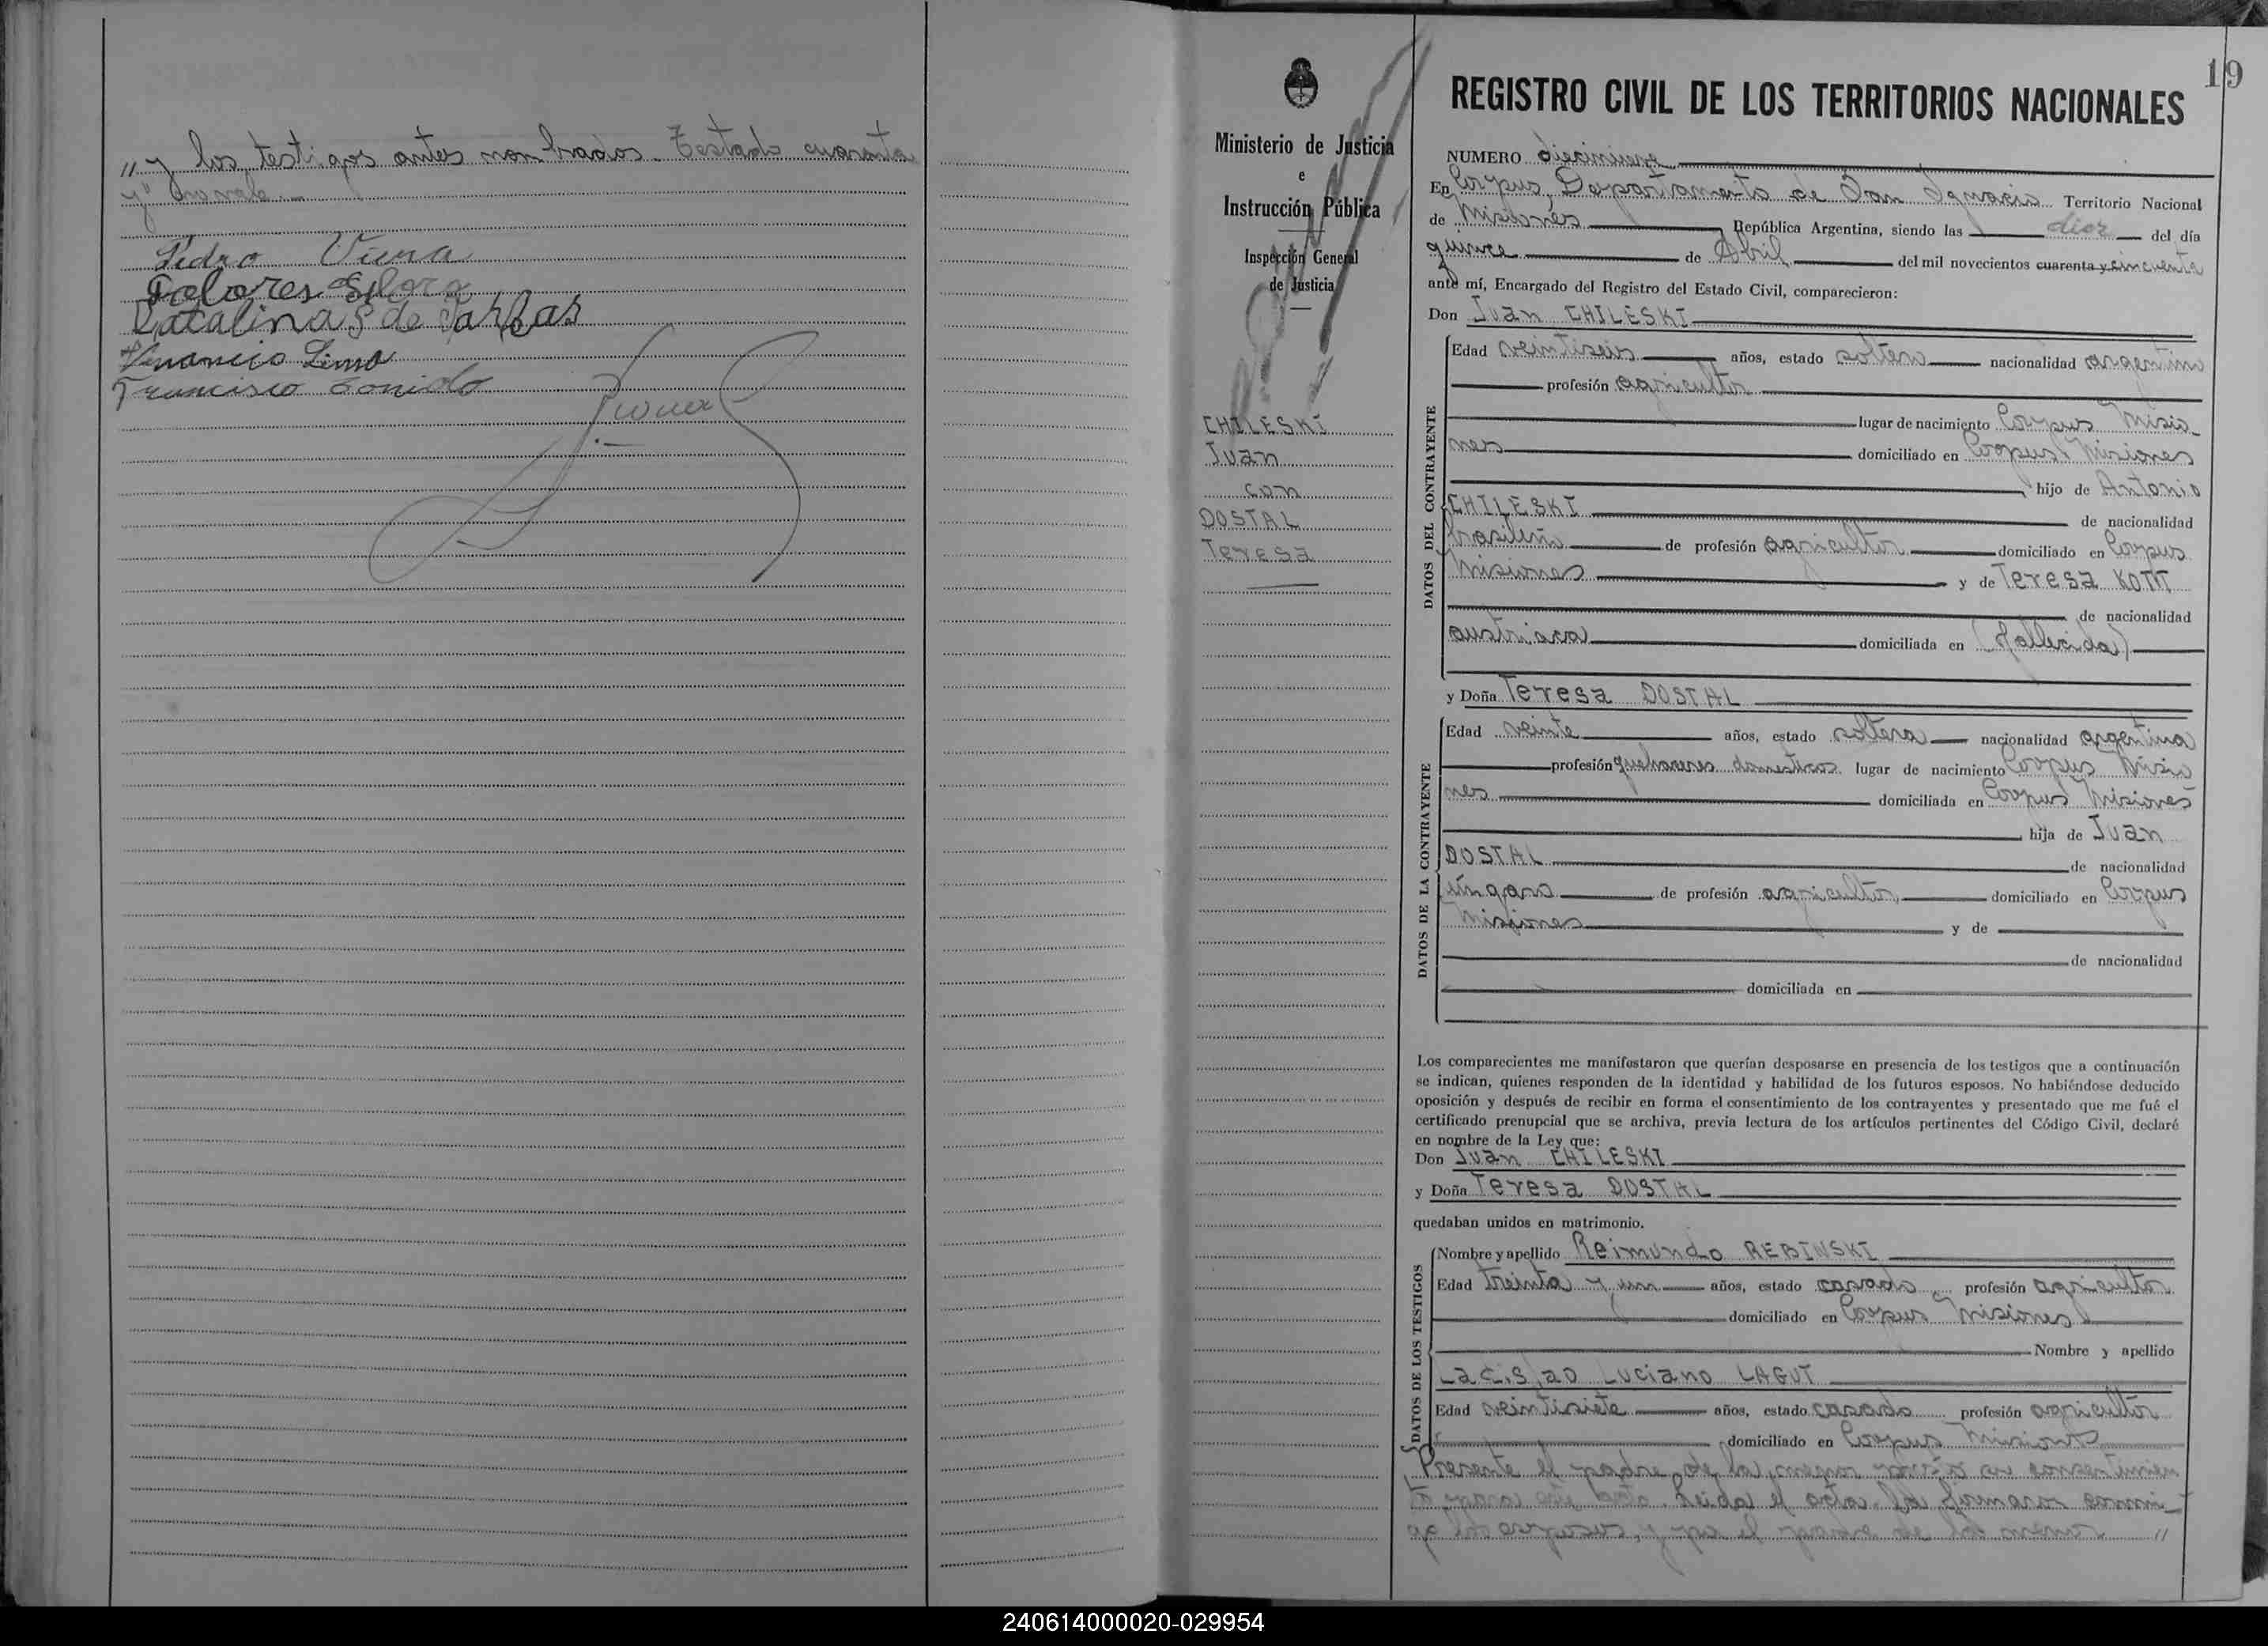 " y los testigos antes nombrados. Testado cuarenta
y" no vale.-
Pedro Viera
Dolores Silora
Catalina S de Farbas
Venancio Lima
Francisco
19
Ministerio de Justicia
e
Instrucción Pública
Inspección General
de Justicia
CHILESKI
Juan
con
DOSTAL
Teresa
REGISTRO CIVIL DE LOS TERRITORIOS NACIONALES
NUMERO diecinueve
En Corpus, Departamento de San Ignacio Territorio Nacional
de Misiones República Argentina, siendo las diez del día
quince de Abril del mil novecientos cuarenta y cincuenta
ante mí, Encargado del Registro del Estado Civil, comparecieron:
Don Juan CHILESKI
DATOS DEL CONTRAYENTE
Edad veintiseis años, estado soltero nacionalidad argentino
profesión agricultor
lugar de nacimiento Corpus Misio-
nes domiciliado en Corpus Misiones
hijo de Antonio
CHILESKI de nacionalidad
brasileño de profesión agricultor domiciliado en Corpus
Misiones y de Teresa KOTT
de nacionalidad
austriaca domiciliada en (fallecida)
y Doña Teresa DOSTAL
DATOS DE LA CONTRAYENTE
Edad veinte años, estado soltera nacionalidad argentina
profesión quehaceres domesticos lugar de nacimiento Corpus Misio
nes domiciliada en Corpus Misiones
hija de Juan
DOSTAL de nacionalidad
úngaro de profesión agricultor domiciliado en Corpus
Misiones y de
de nacionalidad
domiciliada en
Los comparecientes me manifestaron que querían desposarse en presencia de los testigos que a continuación
se indican, quienes responden de la identidad y habilidad de los futuros esposos. No habiéndose deducido
oposición y después de recibir en forma el consentimiento de los contrayentes y presentado que me fué el
certificado prenupcial que se archiva, previa lectura de los artículos pertinentes del Código Civil, declaré
en nombre de la Ley que:
Don Juan CHILESKI
y Doña Teresa DOSTAL
quedaban unidos en matrimonio.
DATOS DE LOS TESTIGOS
Nombre y apellido Reimundo REBINSKI
Edad treinta y un años, estado casado profesión agricultor
domiciliado en Corpus Misiones
Nombre y apellido
Ladislao Luciano LAGUT
Edad veintisiete años, estado casado profesión agricultor
domiciliado en Corpus Misiones
Presente el padre de la menor prestó su consentimien
to para este acto. Leida el acta la firmaron conmi-
go los esposos, y por el padre de la menor "
240614000020-029954